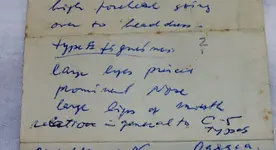 high forehead going
over to headdress.
Type B figurines ?
large eyes
prominent Nose
large lips of mouth
relation in general to C-5
Types